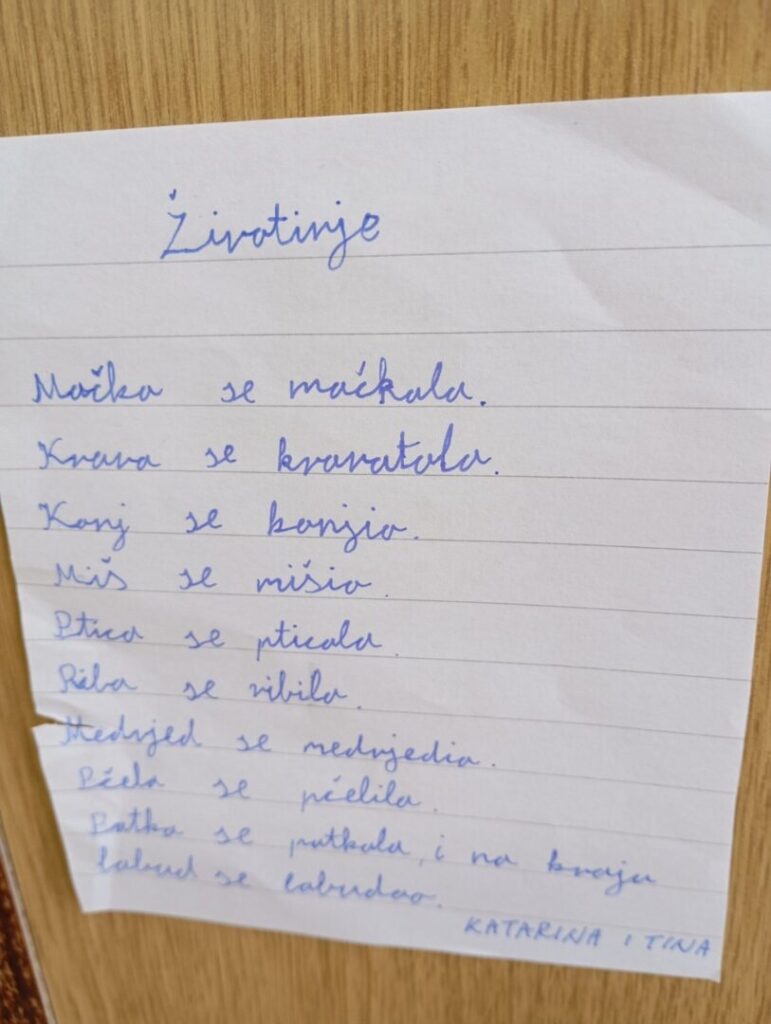 Životinje
Mačka se mačkala.
Krava se kravatala.
Konj se konjio.
Miš se mišio.
Ptica se pticala.
Riba se ribila.
Medvjed se medvjedio.
Pčela se pčelila.
Patka se patkala, i na kraju
labud se labudao.
KATARINA I TINA